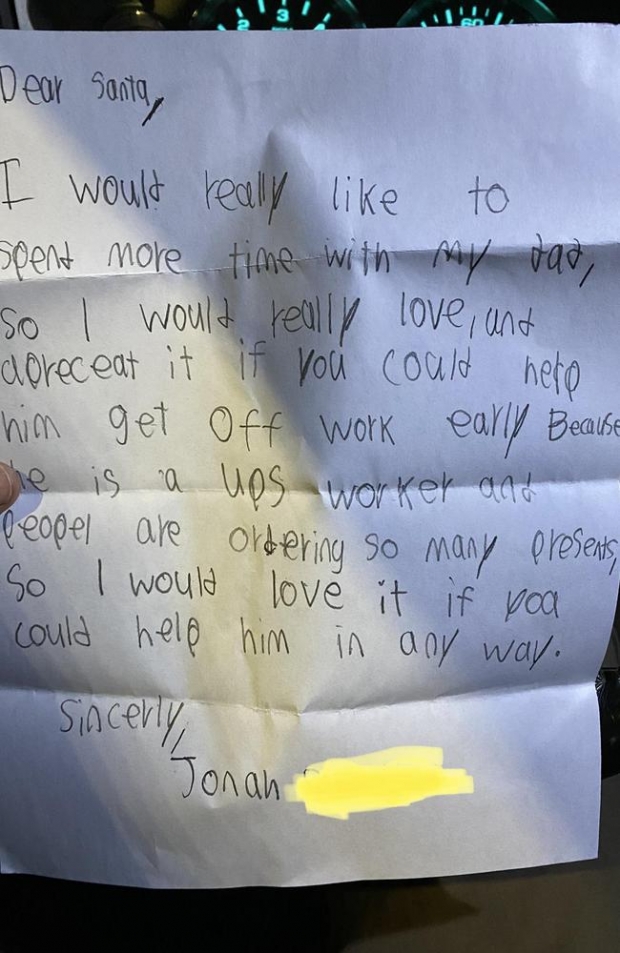 2
3
60
Dear Santa,
I would really like to
spent more time with my dad,
so I would really love, and
apreceat it if you could help
him get off work early Because
he is a ups worker and
peopel are ordering so many presents,
So I would love it if you
could help him in any way.
Sincerly,
Jonah